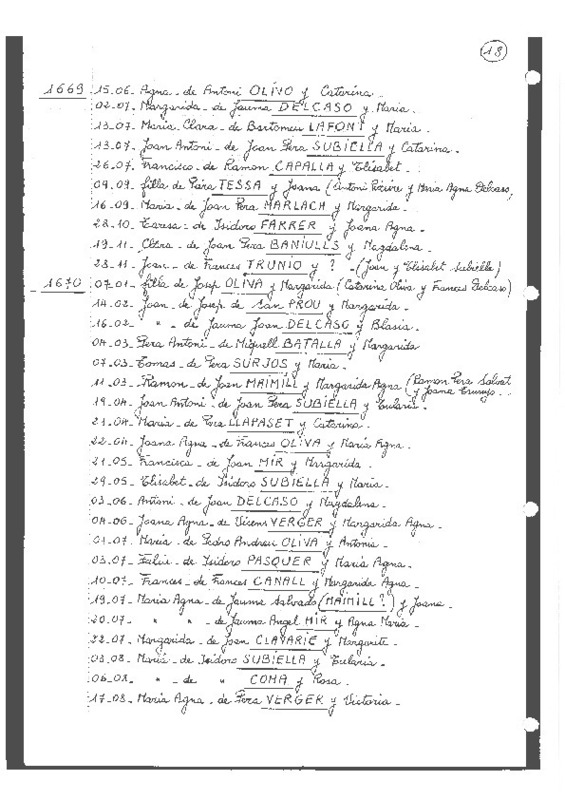 18
1669 15.06. Agna - de Antoni OLIVO y Catarina
02.07. Margarida - de Jauma DELCASO y Maria.
13.07. Maria Clara - de Bartomeu LAFONT y Maria -
13.07. Joan Antoni - de Joan Pera SUBIELLA y Catarina.
26.07. Francisco - de Ramon CAPALLA y Elisabet -
09.09. filla de Pera TESSA y Joana (Antoni Riviere y Maria Agna Delcaso)
16.09 - Maria - de Joan Pera MARLACH y Margarida -
28.10 - Taresa - de Isidoro FARRER y Joana Agna -
19.11 - Clara - de Joan Pera BANIULLS y Magdalina -
23.11 - Joan - de Frances TRUNIO y ? - (Joan y Elisabet Subiella)
1670 07.01 - filla de Josep OLIVA y Margarida (Catarina Oliva y Frances Delcaso)
14.02 - Joan - de Josep de San PROU y Margarida -
16.02 - " - de Jauma Joan DELCASO y Blasia -
04.03 - Pera Antoni - de Miquell BATALLA y Margarida
07.03 - Tomas - de Pera SURJOS y Maria -
11.03 - Ramon - de Joan MAIMILL y Margarida Agna (Ramon Pera Salvat
y Joana
19.04 - Joan Antoni - de Joan Pera SUBIELLA y Eularia -
21.04 - Maria - de Pera LLAPASET y Catarina -
22.04 - Joana Agna - de Frances OLIVA y Maria Agna -
21.05 - Francisca - de Joan MIR y Margarida -
29.05 - Elisabet - de Isidoro SUBIELLA y Maria -
03.06 - Antoni - de Joan DELCASO y Magdalena -
04.06 - Joana Agna - de Visens VERGER y Margarida Agna -
01.07 - Maria - de Pedro Andreu OLIVA y Antonia -
03.07 - - de Isidoro PASQUER y Maria Agna -
10.07 - Frances - de Frances CANALL y Margarida Agna -
19.07 - Maria Agna - de Jauma Salvado (MAIMILL ?) y Joana -
20.07 - " " - de Jauma Angel MIR y Agna Maria -
22.07 - Margarida - de Joan CLAVARIE y Margarite -
03.08 - Maria - de Isidoro SUBIELLA y Eularia -
06.08 - " - de " COMA y Rosa -
17.08 - Maria Agna - de Pera VERGER y Victoria -